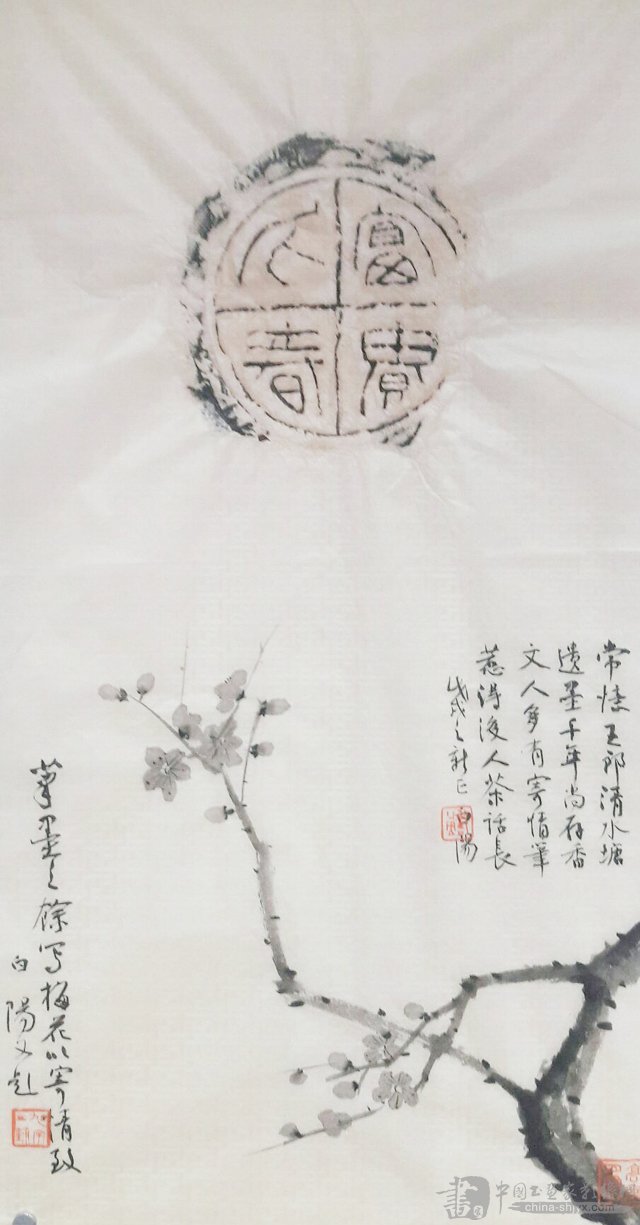 富貴
大春
常憶王郎清水塘
遺墨千年尚存香
文人多有寄情筆
惹得後人茶話長
戊戌之新正 白陽
筆墨之餘寫梅花以寄情致
白陽又題
書 中国书画家
china-shjyx.com